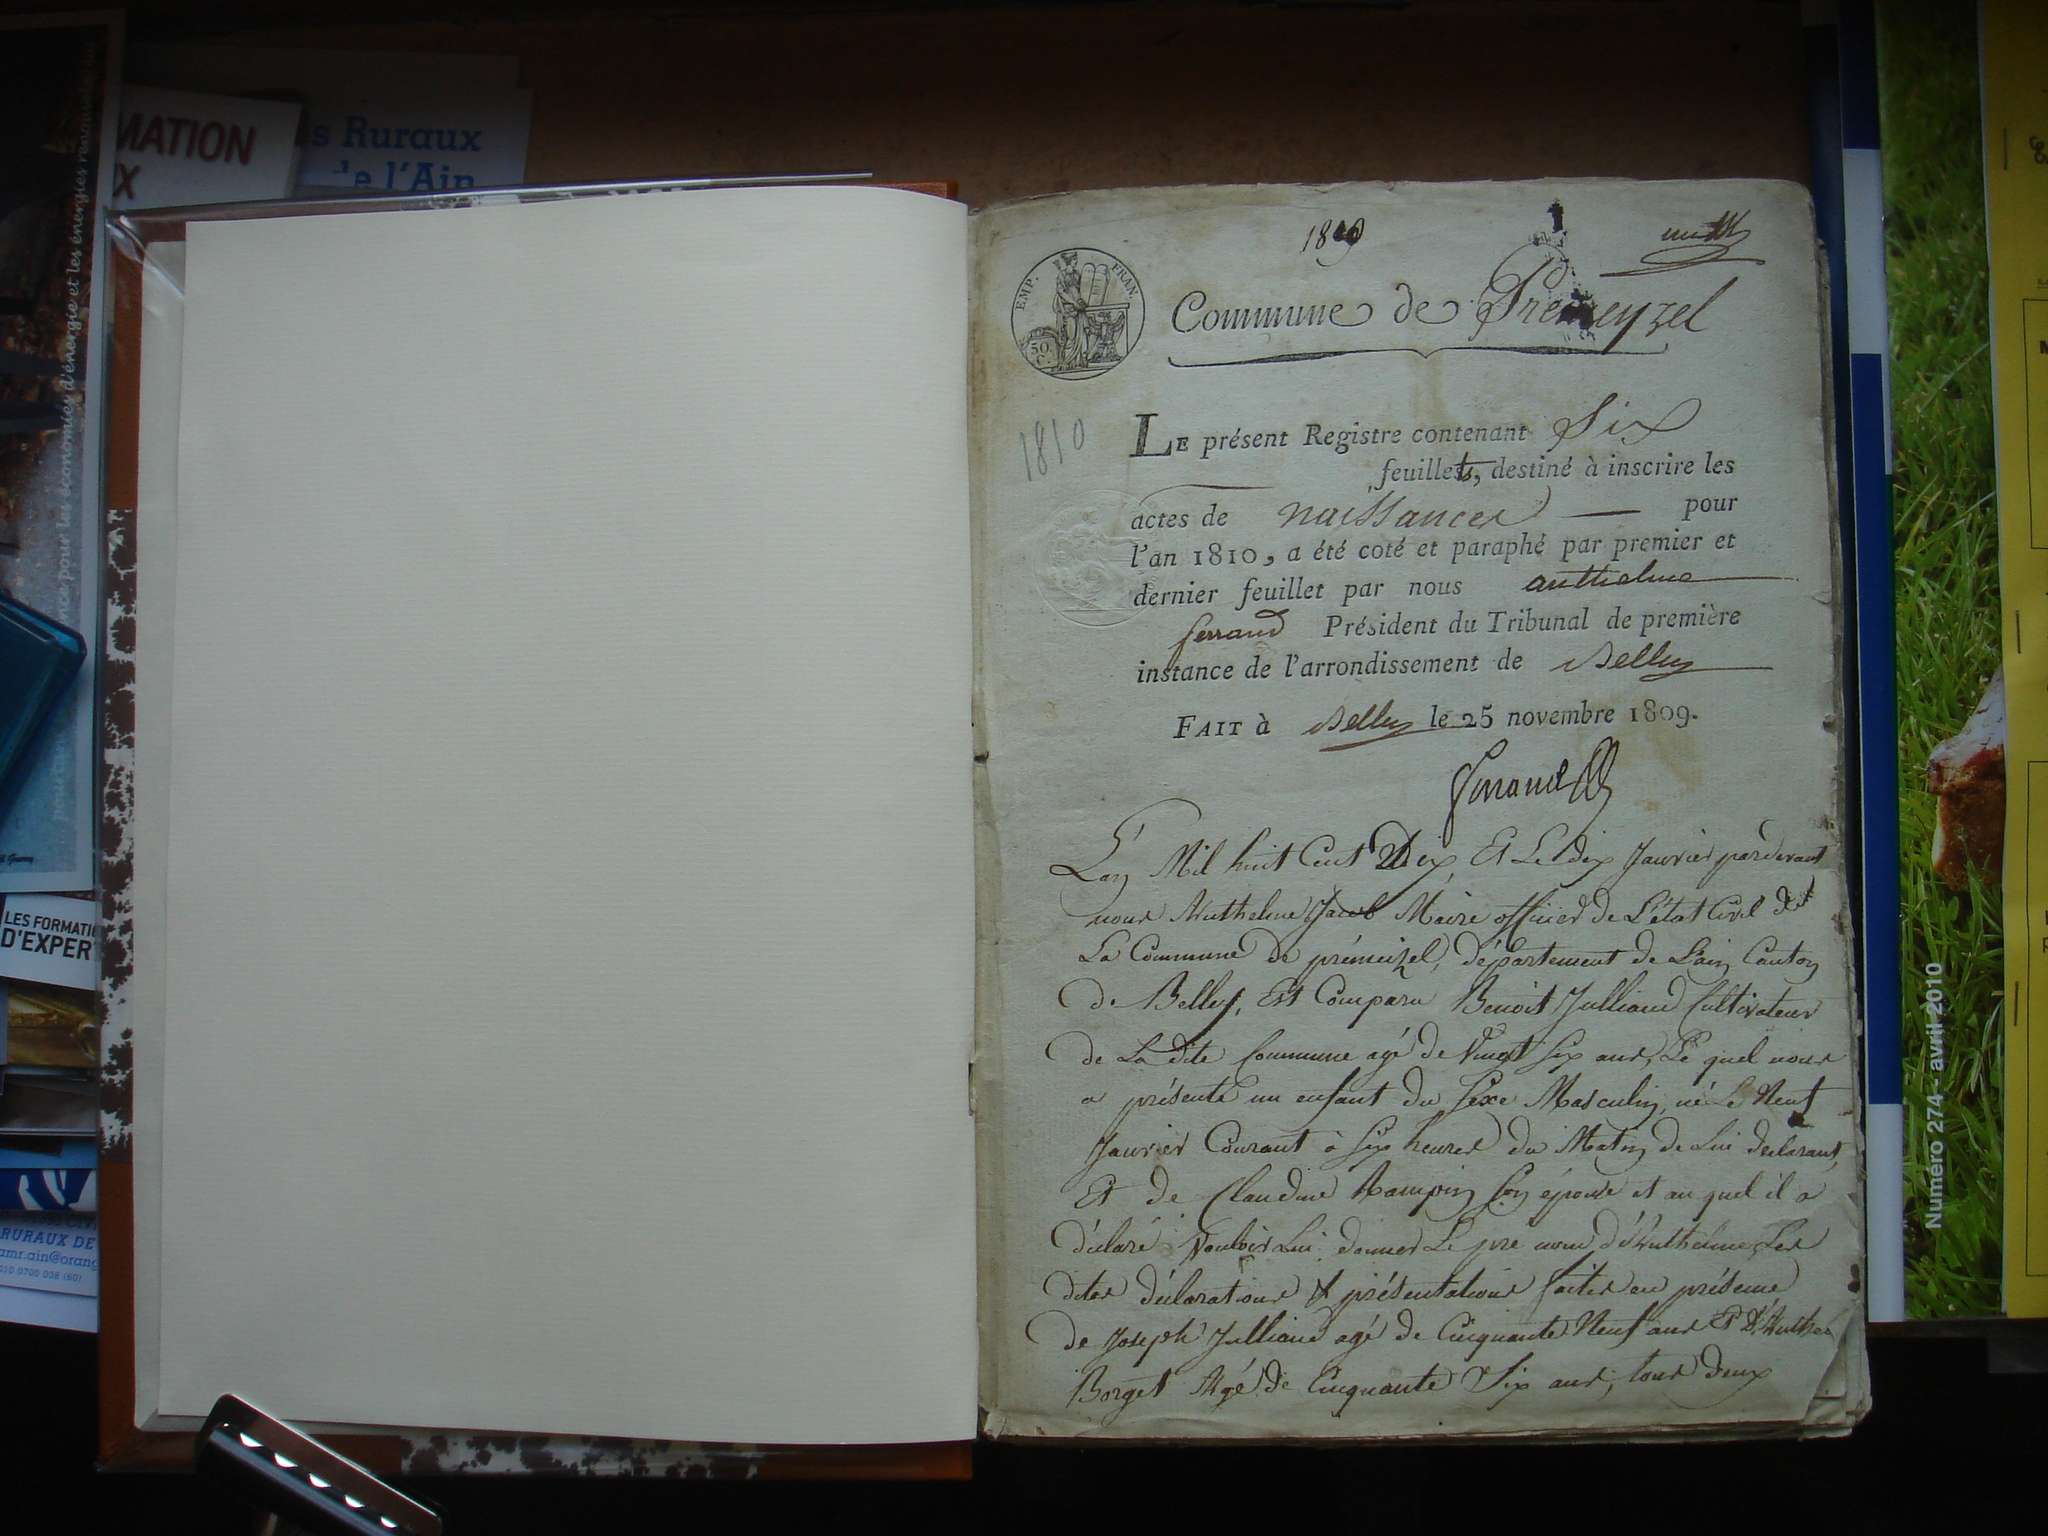 MATION
X
s Ruraux
de l'Ain
pour les économies d'énergie et les énergies renouvelables
LES FORMATI
D'EXPER
RURAUX DE
amr.ain@orang
1810
EMP. FRAN.
50 C.
Commune de Premeyzel
1810
LE présent Registre contenant Six
feuillets, destiné à inscrire les
actes de naissances pour
l'an 1810, a été coté et paraphé par premier et
dernier feuillet par nous anthelme
ferrand Président du Tribunal de première
instance de l'arrondissement de Belley
FAIT à Belley le 25 novembre 1809.
Ferrand
L'an Mil huit Cent Dix, Et Le dix Janvier pardevant
nous Anthelme Jacob Maire officier de L'état Civil de
La Commune de prémeizel, département de L'ain Canton
de Belley, Est Comparu Benoit Julliand Cultivateur
de La dite Commune agé de Vingt Six ans, Le quel nous
a présenté un enfant du Sexe Masculin, né Le Neuf
Janvier Courant à Six heures du Matin de Lui déclarant,
Et de Claudine Rampin Son épouse et au quel il a
déclaré Vouloir Lui donner Le pre nom d'Anthelme, Les
dites déclarations & présentations faites en présence
de Joseph Julliand agé de Cinquante Neuf ans Et D'Anthe
Borget Agé de Cinquante Six ans, tous deux
Numéro 274 - avril 2010